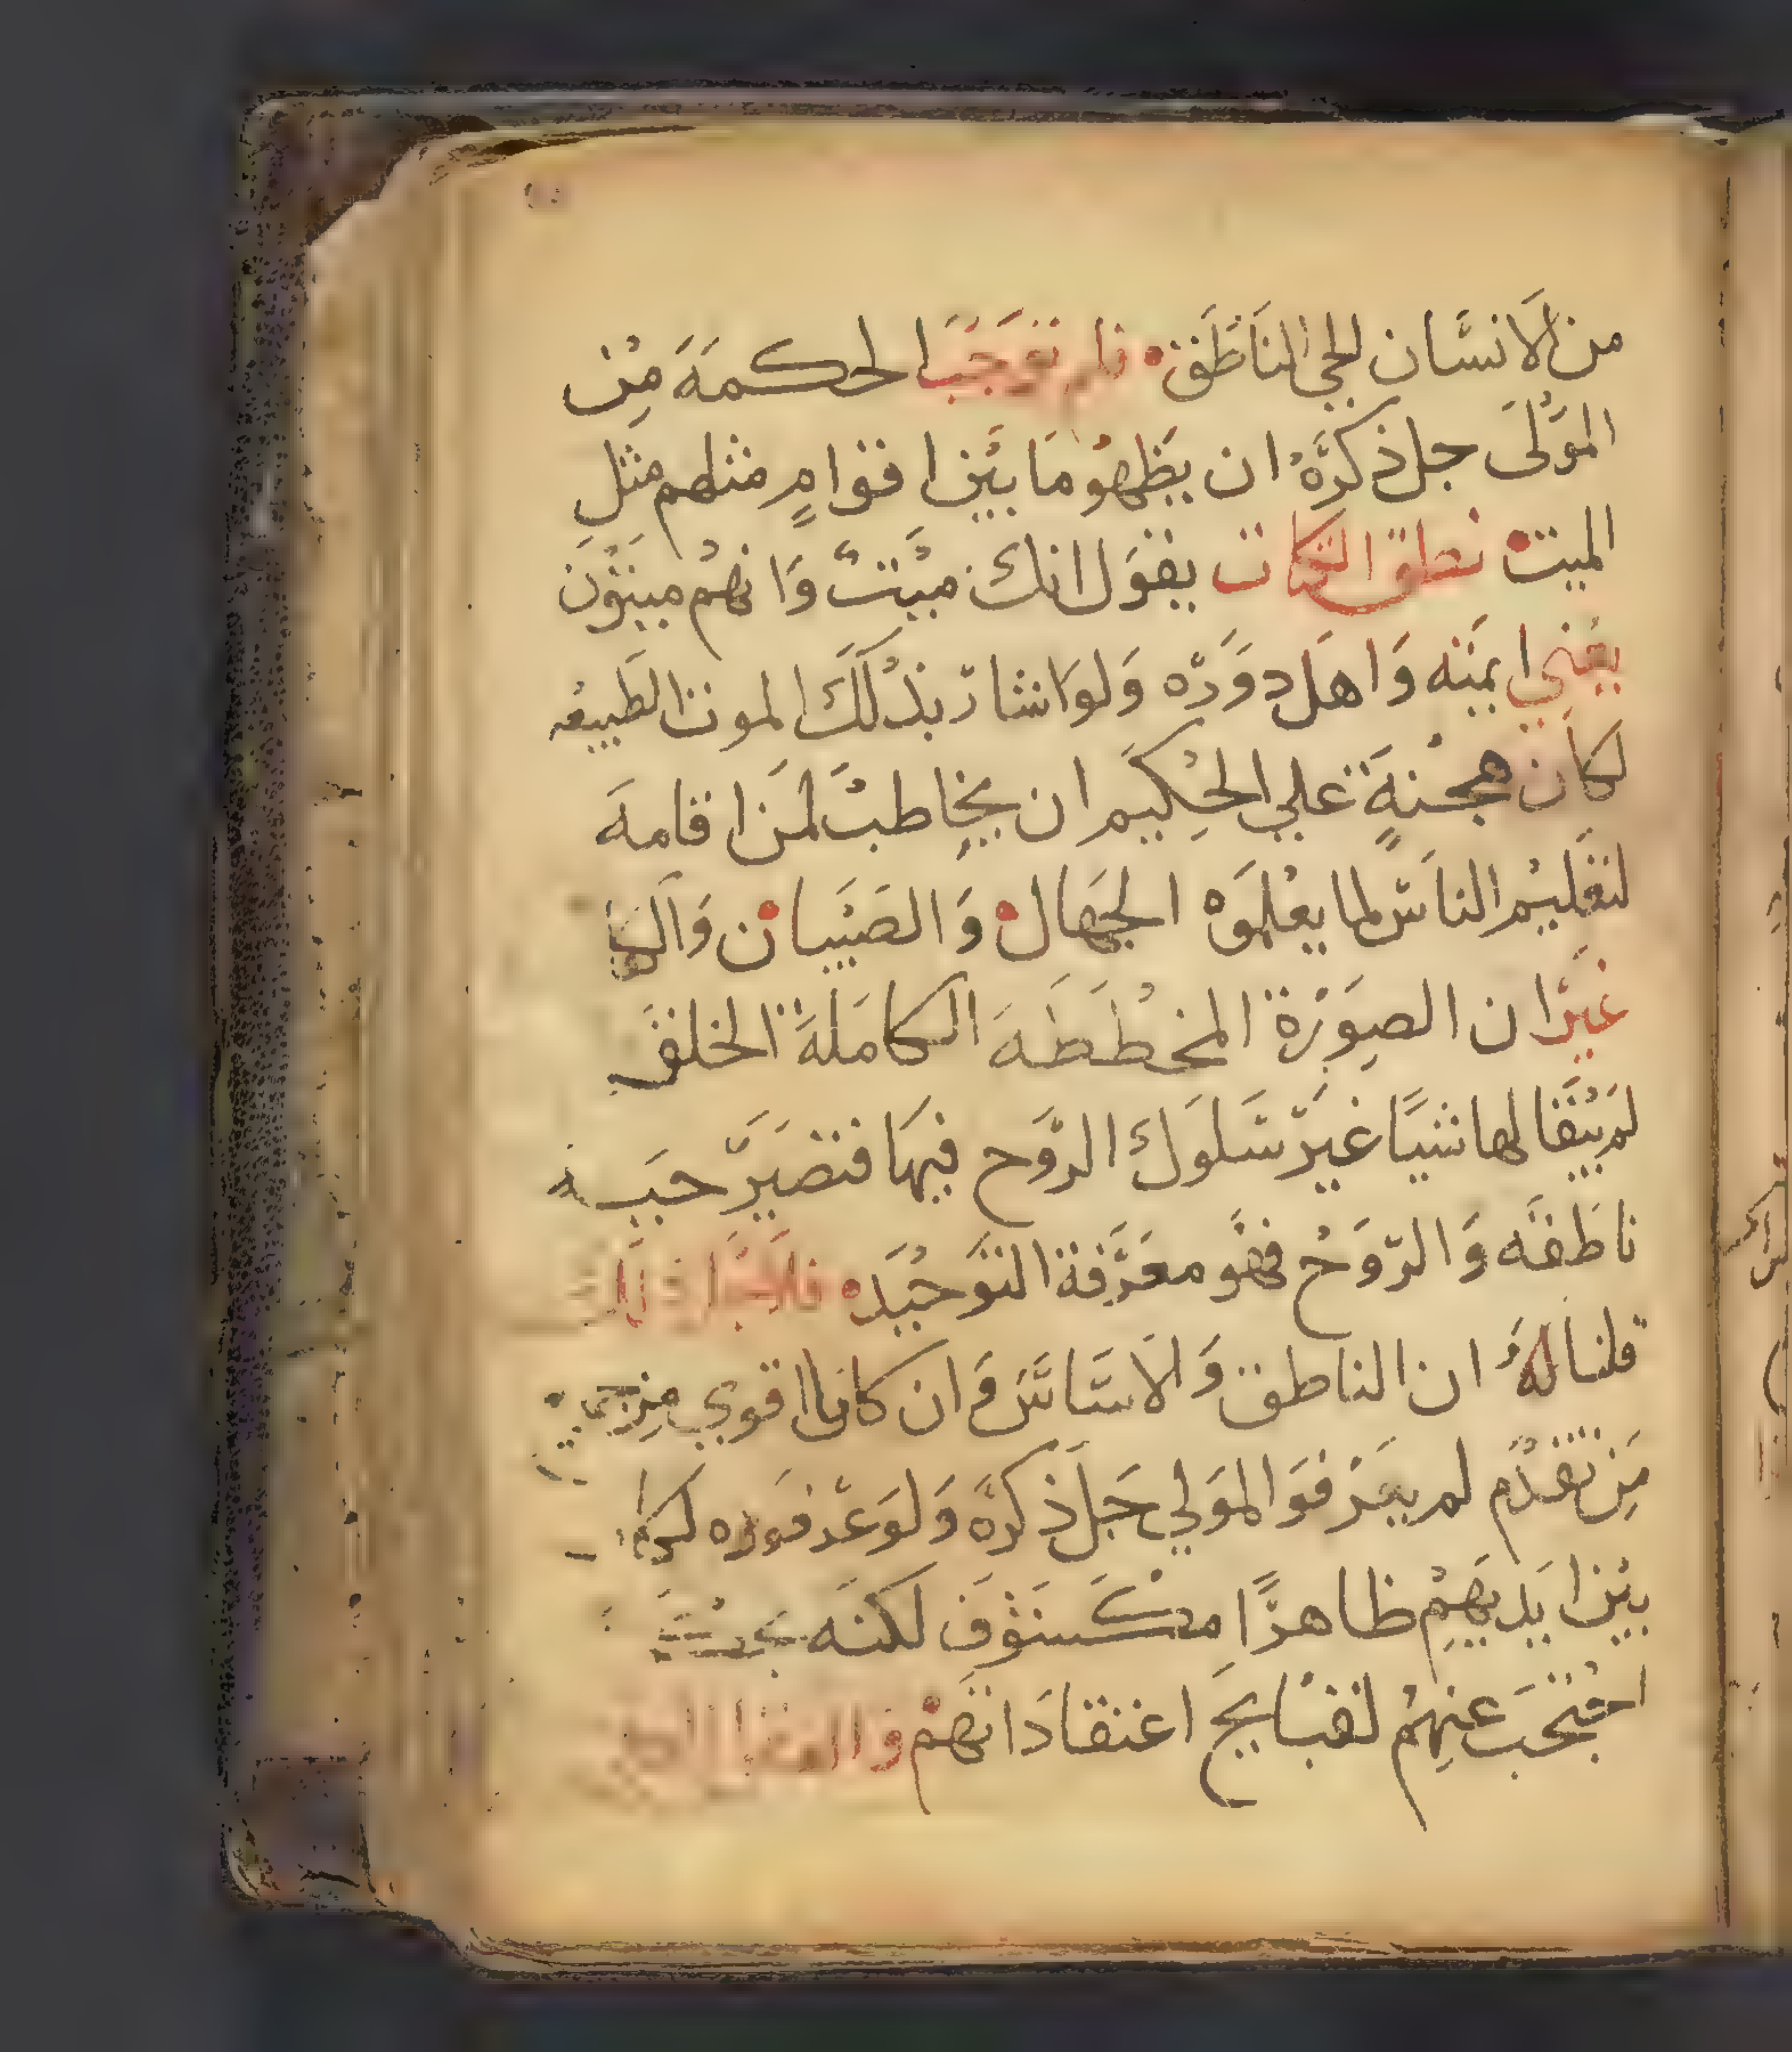 من الانسان الحي الناطق فلم توجب الحكمة من
المولى جل ذكره ان يظهر ما بين اقوام مثلهم مثل
الميت نطق الكتاب يقول انك ميت وانهم ميتون
يعني ايمته واهل دوره ولو اشار بذلك الموت الطبيعه
لكان هجنة علي الحكيم ان يخاطب لمن اقامه
لتعليم الناس لما يعلموه الجهال والصبيان
غير ان الصورة المخططه الكاملة الخلقه
لم يبقا لها شيا غير سلوك الروح فيها فتصير حيه
ناطقه والروح فهو معرفة التوحيد
قلنا له ان الناطق والاساس وان كانا اقوي من
من تقدم لم يعرفوا المولي جل ذكره ولو عرفوه
بين ايديهم ظاهرا مكشوف لكنه
احتجب عنهم لقبايح اعتقاداتهم